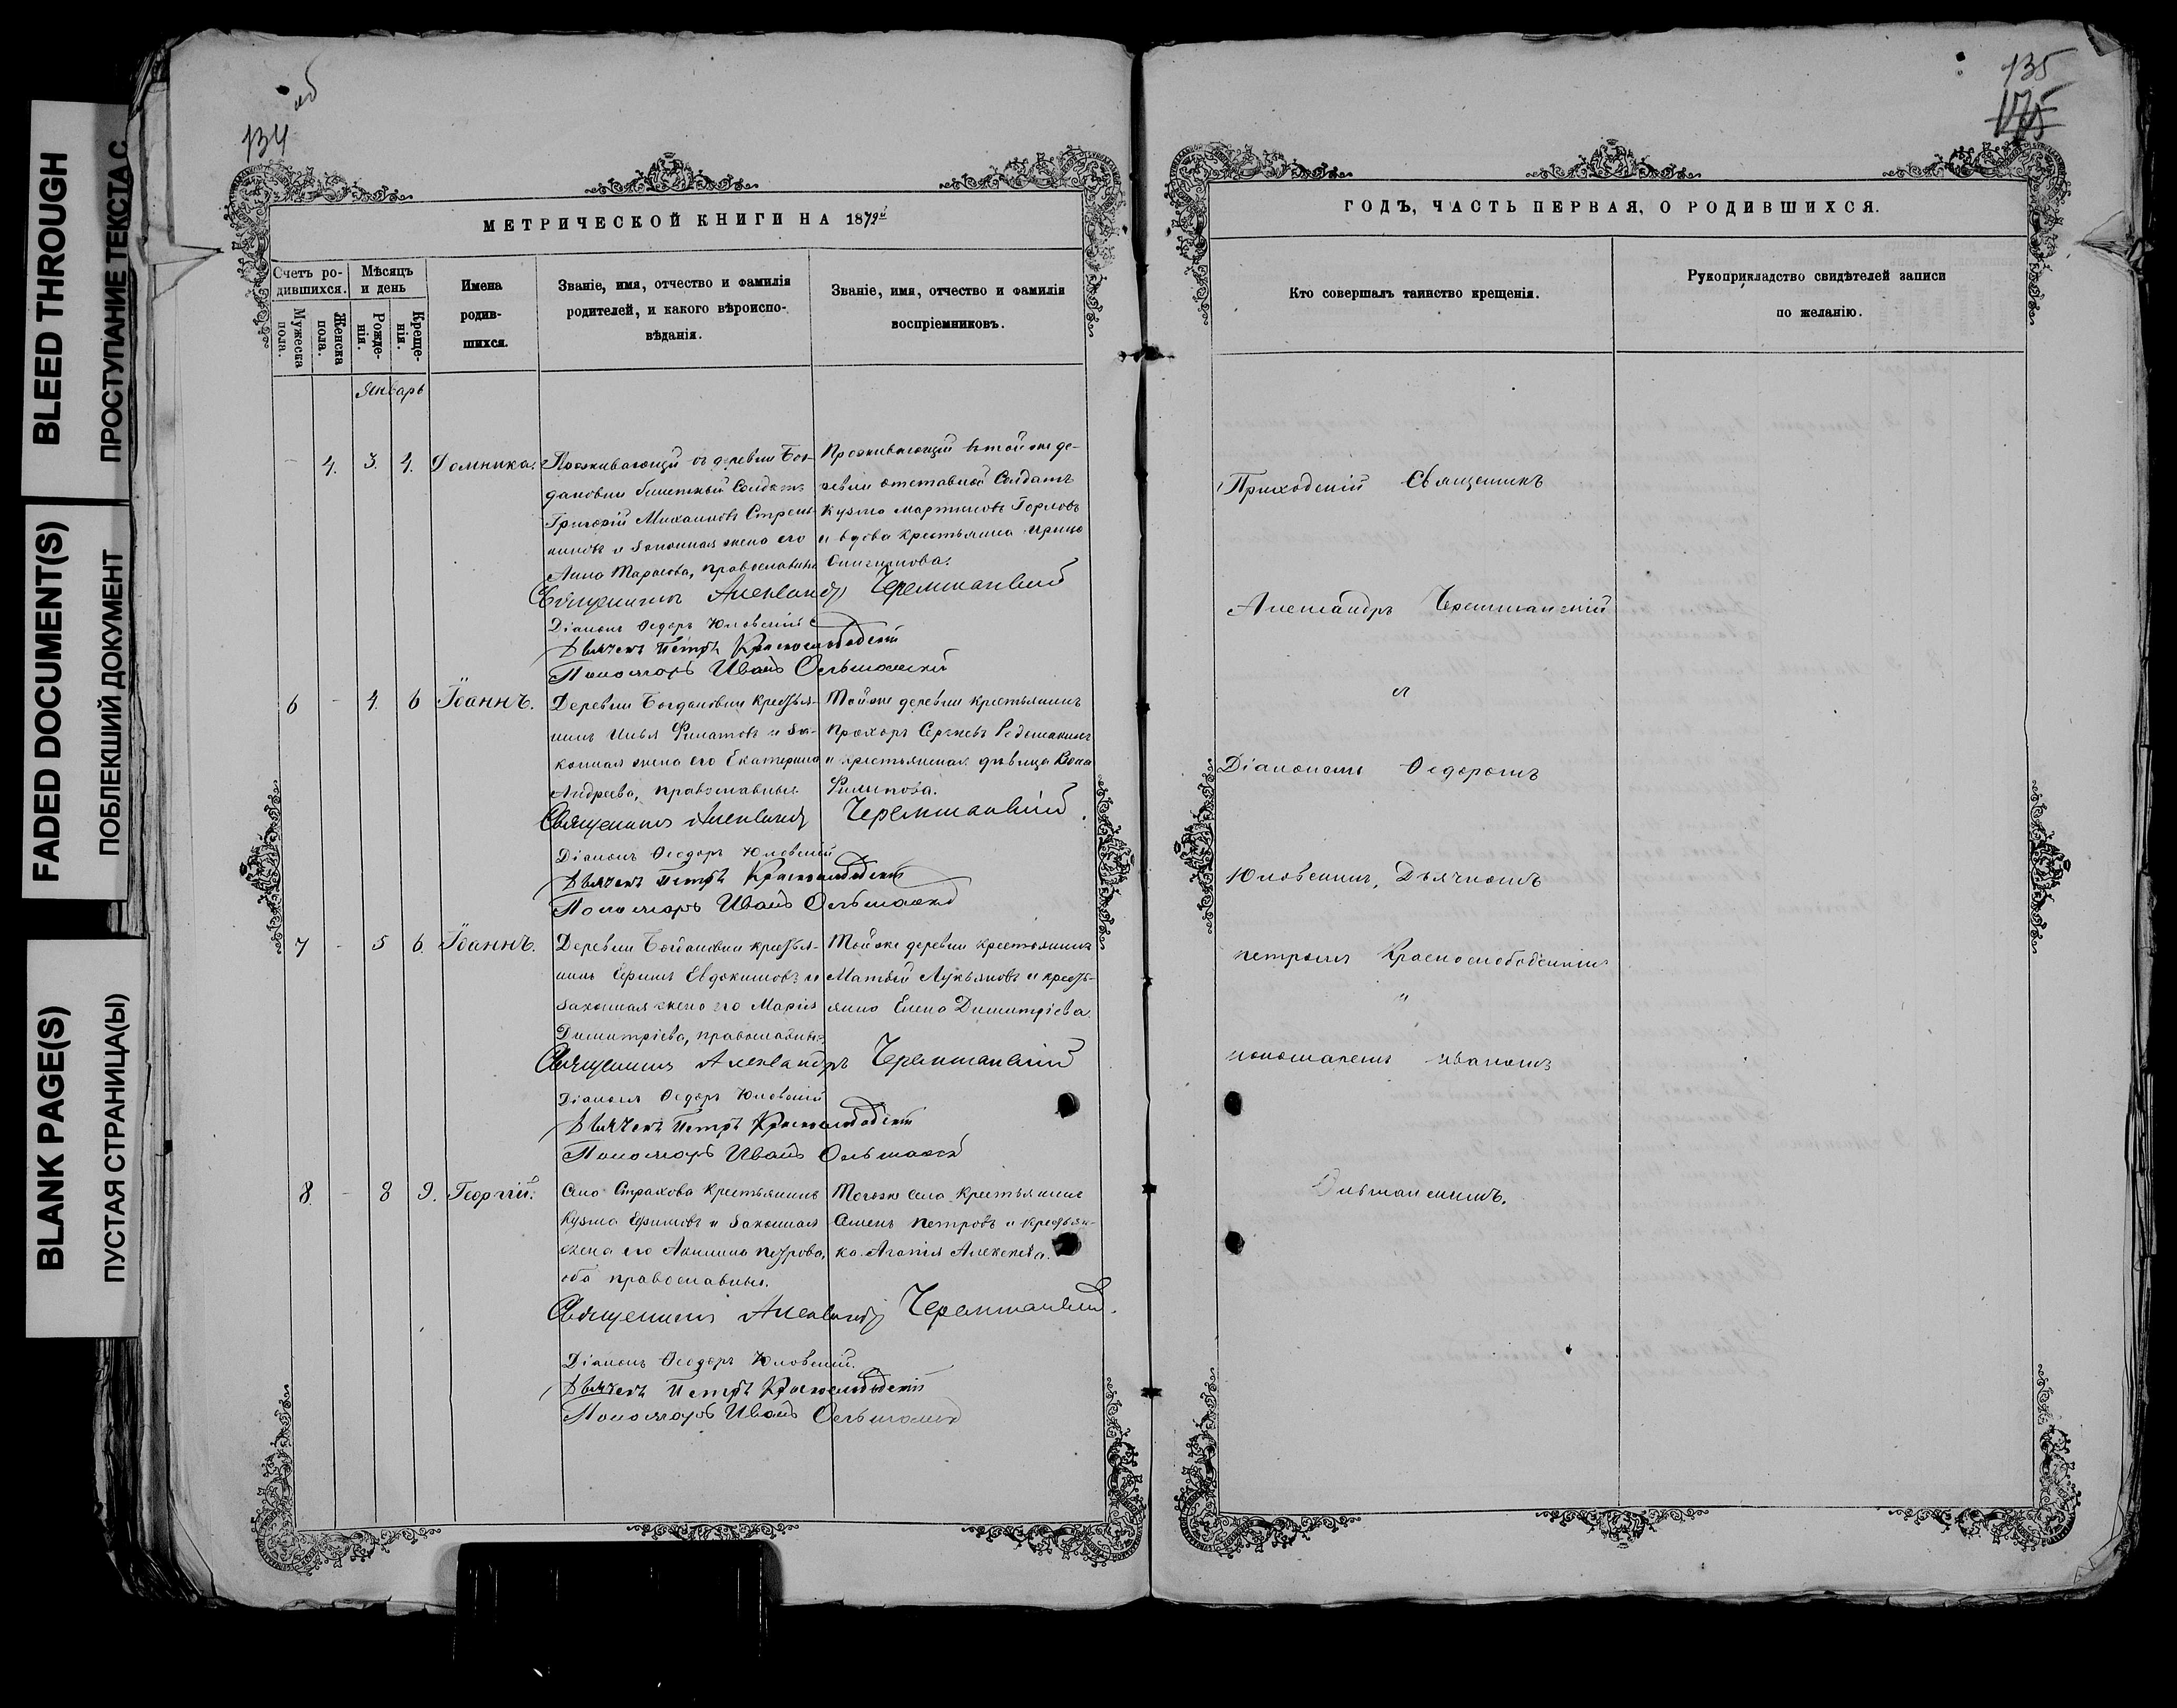 BLEED THROUGH
ПРОСТУПАНИЕ ТЕКСТА С
FADED DOCUMENT(S)
ПОБЛЕКШИЙ ДОКУМЕНТ
BLANK PAGE(S)
ПУСТАЯ СТРАНИЦА(Ы)
об
134
МЕТРИЧЕСКОЙ КНИГИ НА 1879й
Счетъ ро-
дившихся.
Мѣсяцъ
и день
Мужеска
пола.
Женска
пола.
Рожде-
нія.
Креще-
нія.
Имена
родив-
шихся.
Званіе, имя, отчество и фамилія
родителей, и какого вѣроиспо-
вѣданія.
Званіе, имя, отчество и фамилія
воспріемниковъ.
Январь
- 4. 3. 4. Домника.
Проживающій въ деревни Бог-
дановки билетный Солдатъ
Григорій Михаиловъ
и законная жена его
Анна Тарасова, православны
Проживающій въ той же де-
ревни отставной Солдатъ
Кузма Мартиновъ Горловъ
и вдова крестьянка Ирина
Священникъ Александръ Черемшанскій
Діаконъ Ѳедоръ Юловскій
Дьячекъ Петръ Краснослободскій
Пономарь Иванъ Ольшанскій
6 - 4. 6 Іоаннъ.
Деревни Богдановки крестья-
нинъ Илья Филатовъ и за-
конная жена его Екатерина
Андреева, православные
Той же деревни крестьянинъ
Прохоръ Сергѣевъ
и крестьянская дѣвица
Филипова.
Священникъ Александръ Черемшанскій.
Діаконъ Ѳеодоръ Юловскій
Дьячекъ Петръ Краснослободскій
Пономарь Иванъ Ольшанскій
7 - 5 6. Іоаннъ.
Деревни Богдановки крестья-
нинъ Ефимъ Евдокимовъ и
законная жена его Марія
Димитріева, православные
Той же деревни крестьянинъ
Матвій Лукьяновъ и кресть-
янка Елена Димитріева.
Священникъ Александръ Черемшанскій
Діаконъ Ѳедоръ Юловскій
Дьячекъ Петръ Краснослободскій
Пономарь Иванъ Ольшанскій
8. - 8 9. Георгій.
Села Страхова крестьянинъ
Кузма Ефимовъ и законная
жена его Акилина Петрова,
оба православные.
Того же села крестьянинъ
Семенъ Петровъ и крестьян-
ка Агапія Алексѣева.
Священникъ Александръ Черемшанскій.
Діаконъ Ѳеодоръ Юловскій.
Дьячекъ Петръ Краснослободскій
Пономарь Иванъ Ольшанскій
135
ГОДЪ, ЧАСТЬ ПЕРВАЯ, О РОДИВШИХСЯ.
Кто совершалъ таинство крещенія.
Рукоприкладство свидѣтелей записи
по желанію.
Приходскій Священникъ
Александръ Черемшанскій
съ
Діакономъ Ѳедоромъ
Юловскимъ, Дьячкомъ
Петромъ Краснослободскимъ
и
пономаремъ Иваномъ
Ольшанскимъ.